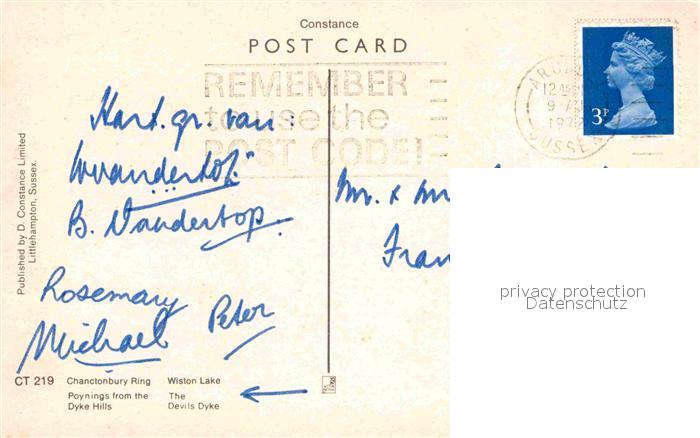 Constance
POST CARD
REMEMBER
to use the
POST CODE!
3P
SUSSEX
Hart. gr. van:
B. Vanderkop.
Rosemary
Michael Peter
Mr. & Mr
Fran
privacy protection
Datenschutz
Published by D. Constance Limited
Littlehampton, Sussex.
CT 219 Chanctonbury Ring Wiston Lake
Poynings from the The
Dyke Hills Devils Dyke